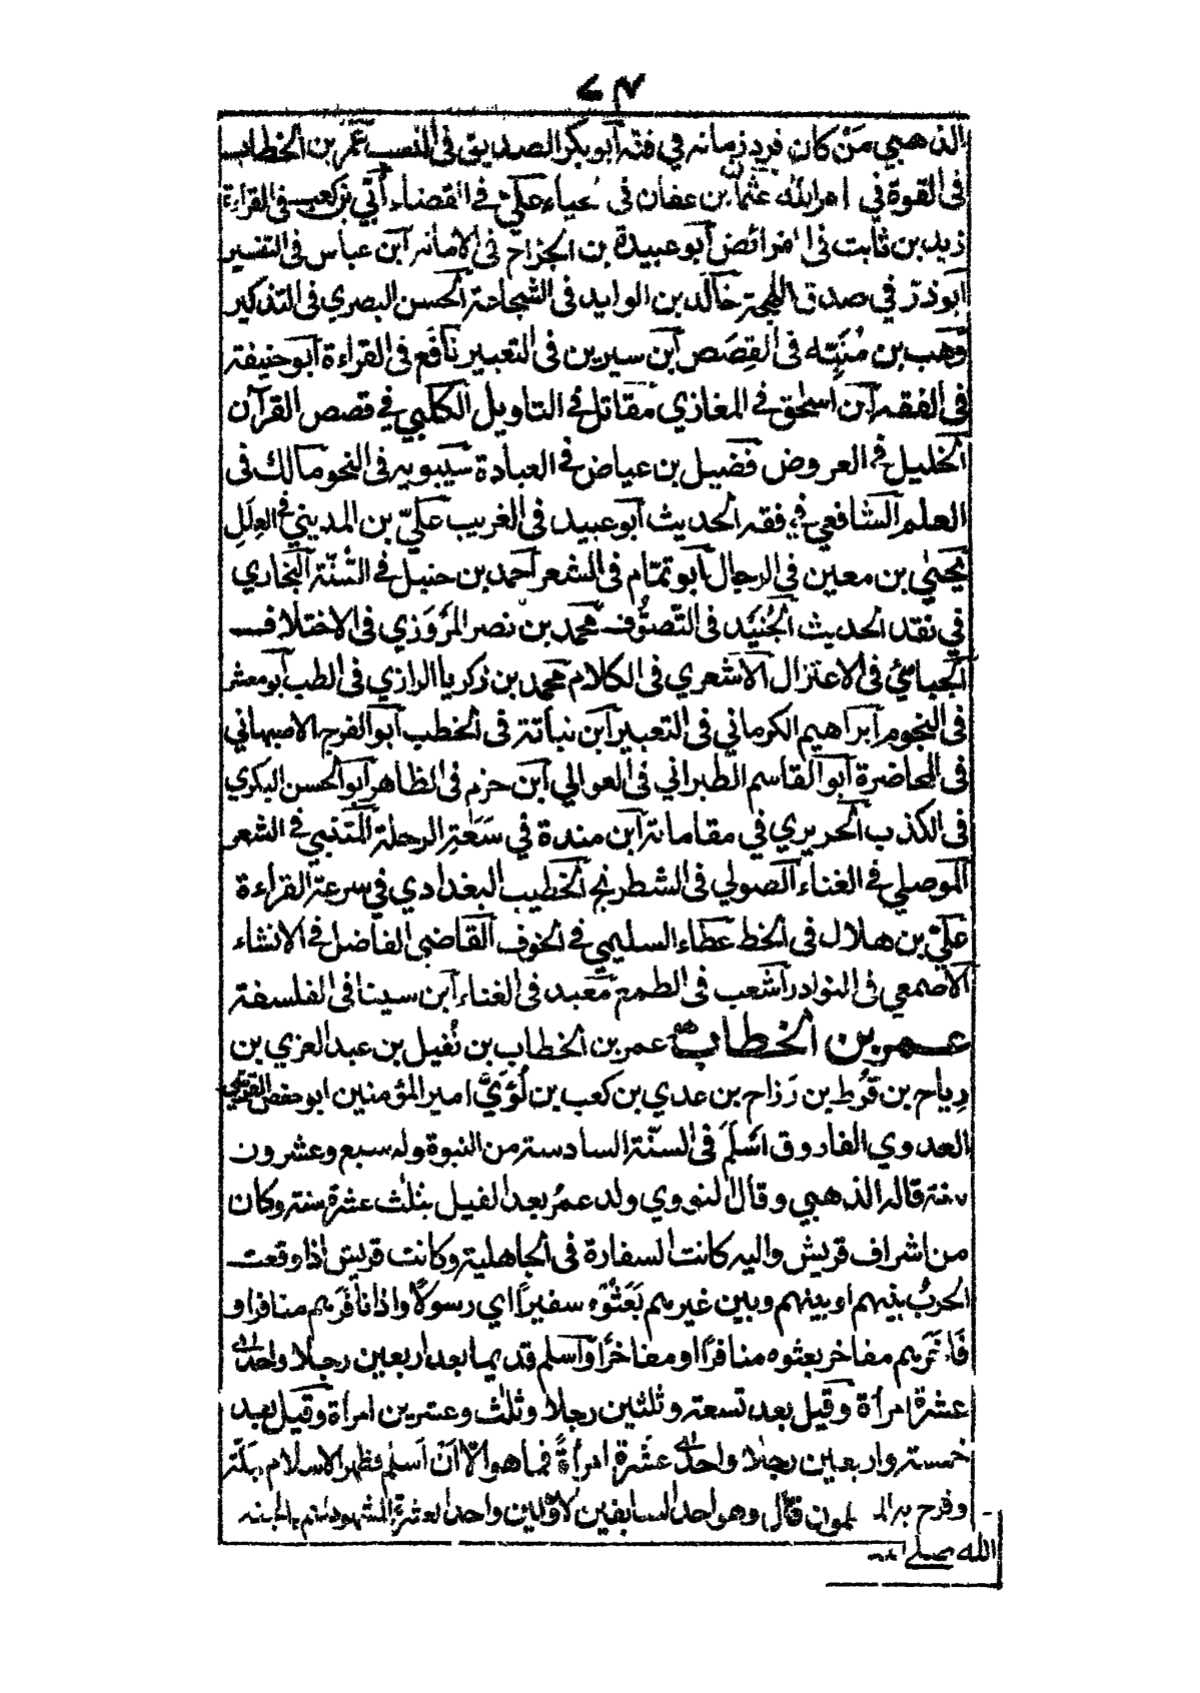 الذهبي مَنْ كان فرد زمانه في فنّه أبو بكر الصديق في النسب عُمَر بن الخطاب
في القوة في امر الله عثمان بن عفان في الحياء علي في القضاء أبيّ بن كعب في القراءة
زيد بن ثابت في الفرائض أبو عبيدة بن الجراح في الامانه ابن عباس في التفسير
ابو ذر في صدق اللهجة خالد بن الوليد في الشجاعة الحسن البصري في التذكير
وَهب بن مُنَبِّه في القِصَص ابن سيرين في التعبير نافع في القراءة أبو حنيفة
في الفقه ابن اسحٰق في المغازي مقاتل في التاويل الكلبي في قصص القرآن
الخليل في العروض فضيل بن عياض في العبادة سيبويه في النحو مالك في
العلم الشافعي في فقه الحديث أبو عبيد في الغريب عليّ بن المديني في العِلَلِ
يحيٰي بن معين في الرجال أبو تمّام في الشعر أحمد بن حنبل في السُّنّة البخاري
في نقد الحديث الجُنَيَد في التّصوُّف محمد بن نصر المَرْوَزي في الاختلاف
الجبائي في الاعتزال الأشعري في الكلام محمد بن زكريا الرازي في الطب أبو معشر
في النجوم إبراهيم الكرماني في التعبير ابن نباتة في الخطب أبو الفرج الاصبهاني
في المحاضرة أبو القاسم الطبراني في العوالي ابن حزم في الظاهر أبو الحسن البكري
في الكذب الحريري في مقاماته ابن مندة في سَعَةِ الرحلة المتنبي في الشعر
الموصلي في الغناء الصولي في الشطرنج الخطيب البغدادي في سرعة القراءة
عليّ بن هلال في الخط عطاء السليمي في الخوف القاضي الفاضل في الانشاء
الأصمعي في النوادر أشعب في الطمع معبد في الغناء ابن سينا في الفلسفة
عمر بن الخطاب عمر بن الخطاب بن نُفيل بن عبد العزي بن
رِياح بن قُرْط بن رَزاح بن عدي بن كعب بن لُؤيّ امير المؤمنين ابو حفص القرشي
العدوي الفاروق اَسْلَمَ في السنّة السادسة من النبوة وله سبع وعشرون
سنة قاله الذهبي وقال النووي ولد عمرُ بعد الفيل بثلٰث عشرة سنة وكان
من اشراف قريش واليه كانت السفارة في الجاهلية وكانت قريش اذا وقعت
الحربُ بينهم او بينهم وبين غيرهم بَعَثُوْه سفيرًا اي رسولًا واذا نافَرَهم منافر او
فَاخَرَهم مفاخر بعثوه منافرًا او مفاخرًا واسلم قديما بعد اربعين رجلا واحدٰي
عشرة امرأة وقيل بعد تسعة وثلثين رجلا وثلٰث وعشرين امراة وقيل بعد
خمسة واربعين رجلا واحدٰي عشَرة امرأةً فما هو الّا اَنْ اَسلم فظهر الاسلام بمكّة
وفرح به المسلمون قال وهو احد السابقين الاوّلين واحد العشرة المشهود لهم بالجنة
الله صلى